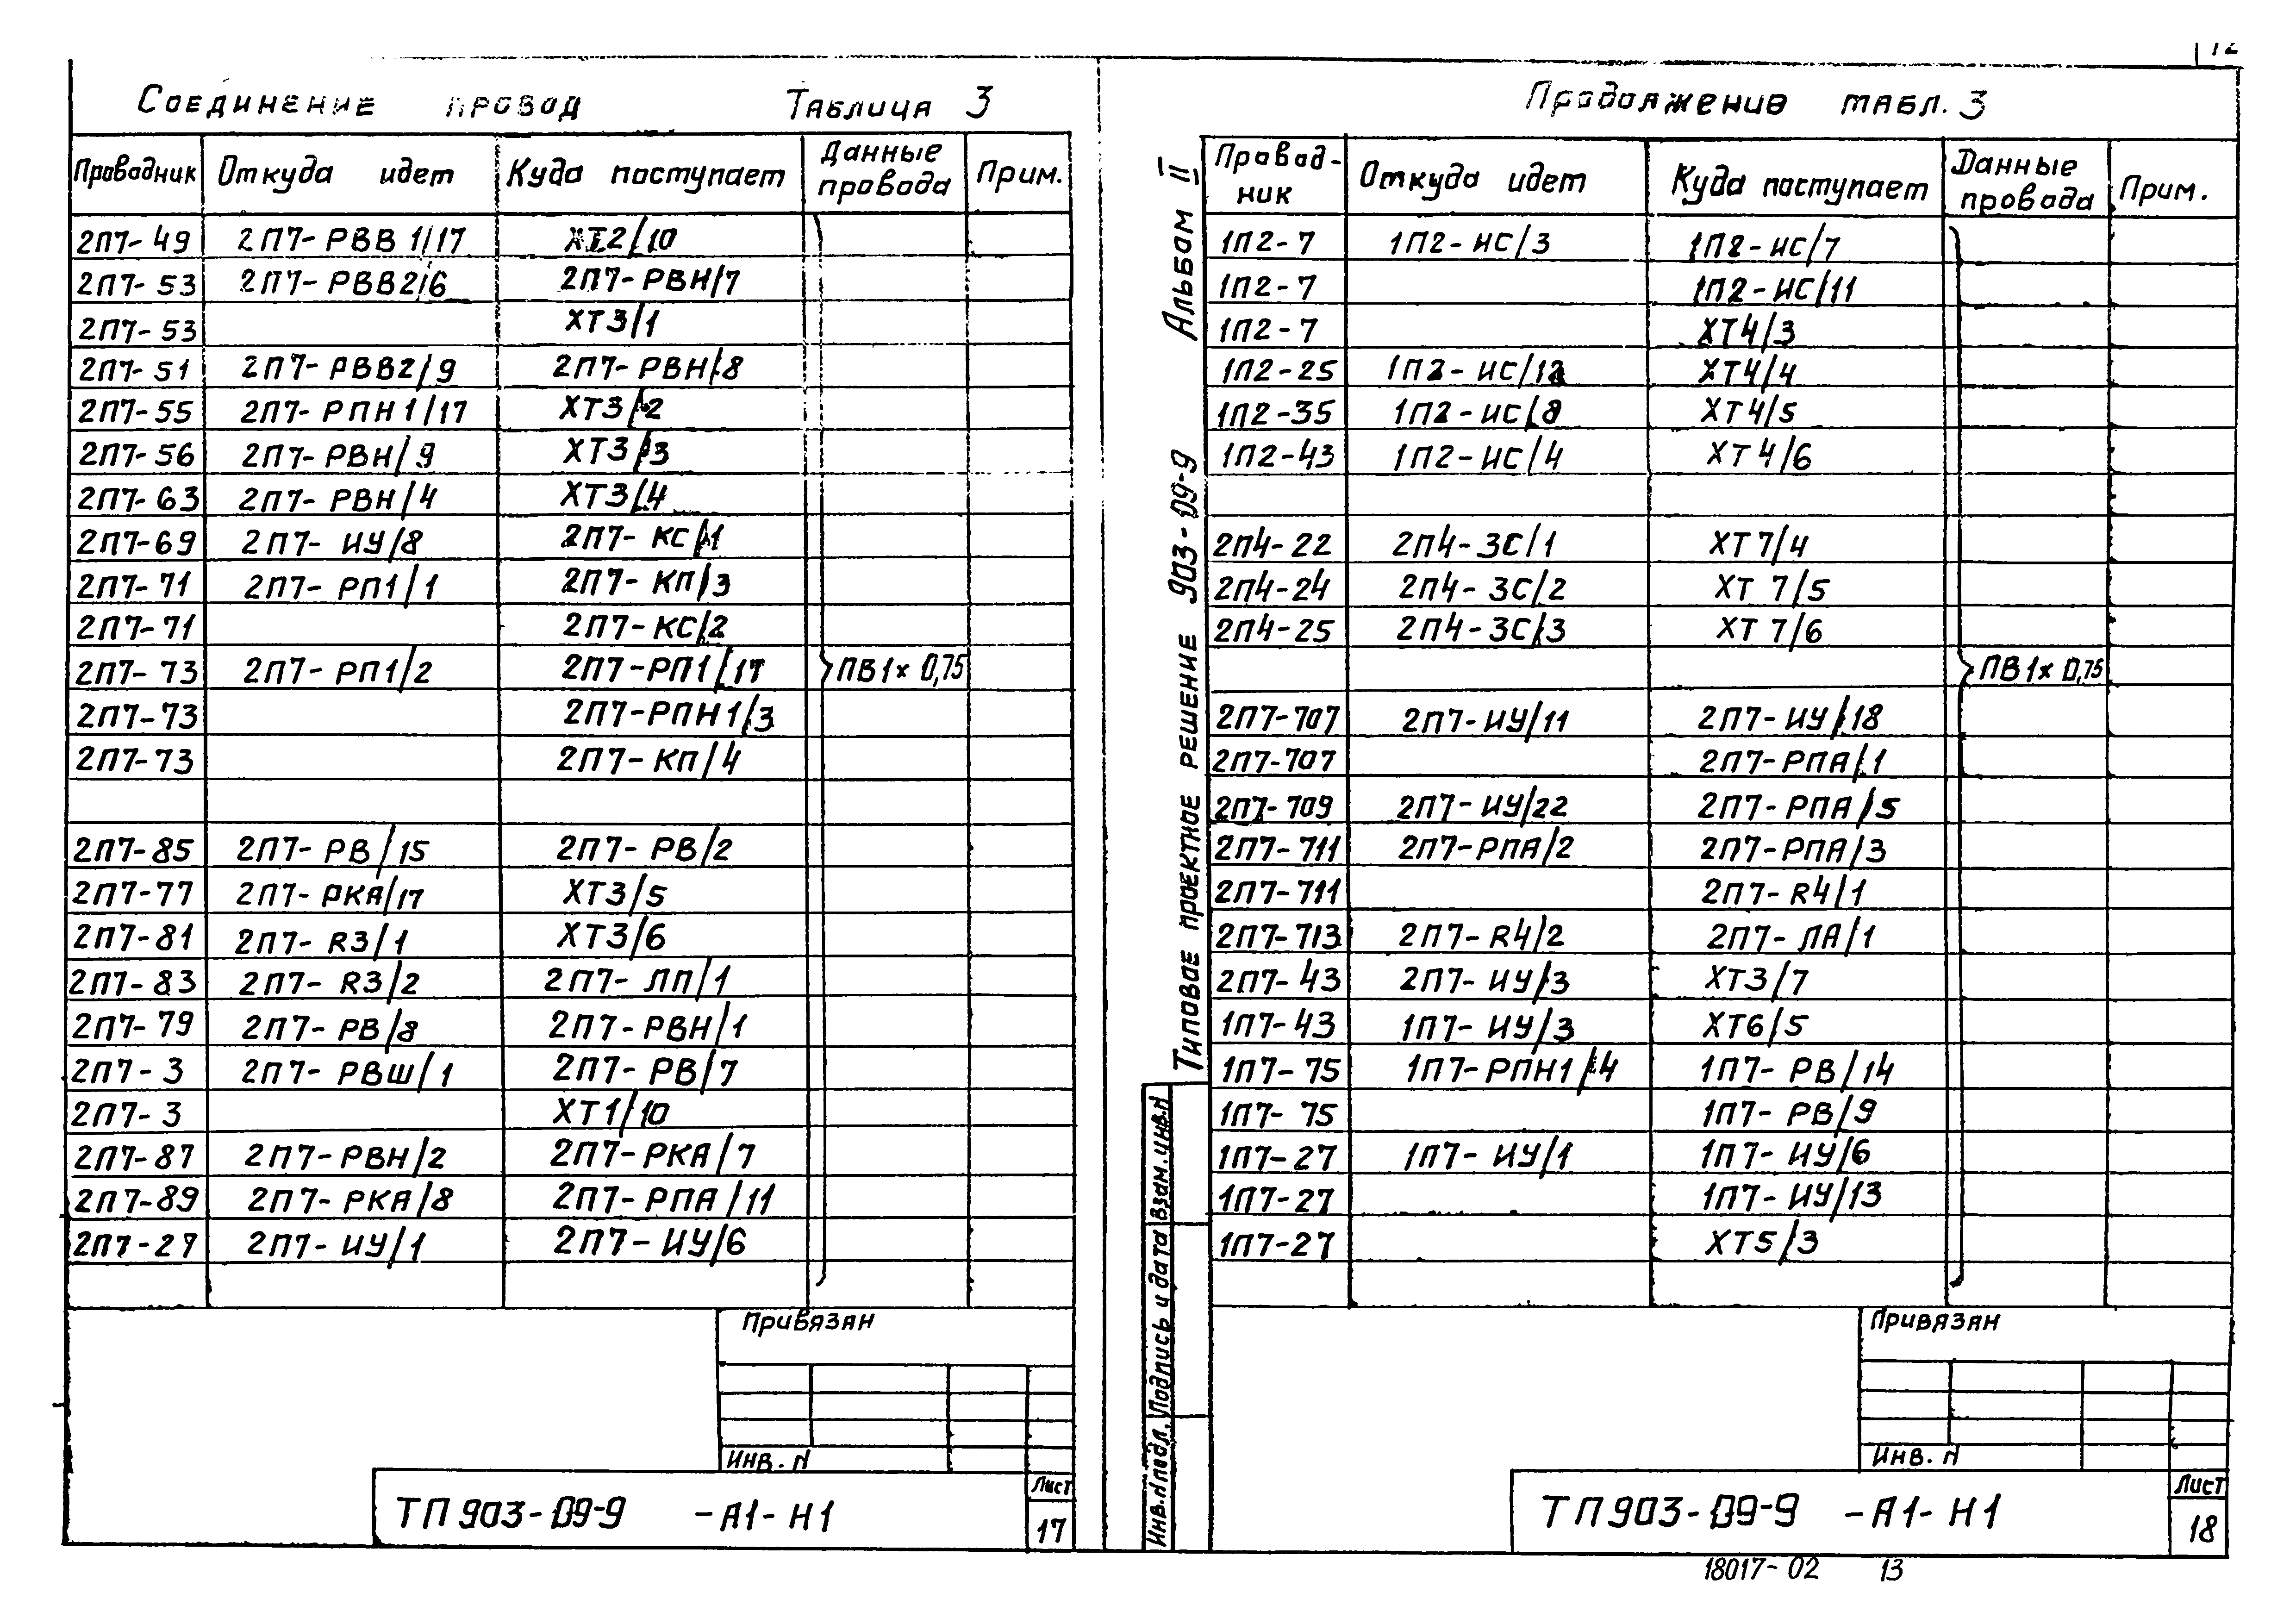 12
Соединение провод Таблица 3
Проводник Откуда идет Куда поступает Данные провода Прим.
2П7-49 2П7-РВВ1/17 ХТ2/10
2П7-53 2П7-РВВ2/6 2П7-РВН/7
2П7-53 ХТ3/1
2П7-51 2П7-РВВ2/9 2П7-РВН/8
2П7-55 2П7-РПН1/17 ХТ3/2
2П7-56 2П7-РВН/9 ХТ3/3
2П7-63 2П7-РВН/4 ХТ3/4
2П7-69 2П7-ИУ/8 2П7-КС/1
2П7-71 2П7-РП1/1 2П7-КП/3
2П7-71 2П7-КС/2
2П7-73 2П7-РП1/2 2П7-РП1/17 ПВ1х0,75
2П7-73 2П7-РПН1/3
2П7-73 2П7-КП/4
2П7-85 2П7-РВ/15 2П7-РВ/2
2П7-77 2П7-РКА/17 ХТ3/5
2П7-81 2П7-R3/1 ХТ3/6
2П7-83 2П7-R3/2 2П7-ЛП/1
2П7-79 2П7-РВ/8 2П7-РВН/1
2П7-3 2П7-РВШ/1 2П7-РВ/7
2П7-3 ХТ1/10
2П7-87 2П7-РВН/2 2П7-РКА/7
2П7-89 2П7-РКА/8 2П7-РПА/11
2П7-27 2П7-ИУ/1 2П7-ИУ/6
Привязан
Инв. N
ТП903-09-9 -А1-Н1
Лист
17
Альбом II
Типовое проектное решение 903-09-9
Взам. инв. N
Подпись и дата
Инв. N подл.
Продолжение табл. 3
Провод-
ник Откуда идет Куда поступает Данные провода Прим.
1П2-7 1П2-ИС/3 1П2-ИС/7
1П2-7 1П2-ИС/11
1П2-7 ХТ4/3
1П2-25 1П2-ИС/12 ХТ4/4
1П2-35 1П2-ИС/8 ХТ4/5
1П2-43 1П2-ИС/4 ХТ4/6
2П4-22 2П4-3С/1 ХТ7/4
2П4-24 2П4-3С/2 ХТ7/5
2П4-25 2П4-3С/3 ХТ7/6
ПВ1х0,75
2П7-707 2П7-ИУ/11 2П7-ИУ/18
2П7-707 2П7-РПА/1
2П7-709 2П7-ИУ/22 2П7-РПА/5
2П7-711 2П7-РПА/2 2П7-РПА/3
2П7-711 2П7-R4/1
2П7-713 2П7-R4/2 2П7-ЛА/1
2П7-43 2П7-ИУ/3 ХТ3/7
1П7-43 1П7-ИУ/3 ХТ6/5
1П7-75 1П7-РПН1/4 1П7-РВ/14
1П7-75 1П7-РВ/9
1П7-27 1П7-ИУ/1 1П7-ИУ/6
1П7-27 1П7-ИУ/13
1П7-27 ХТ5/3
Привязан
Инв. N
ТП903-09-9 -А1-Н1
Лист
18
18017-02 13